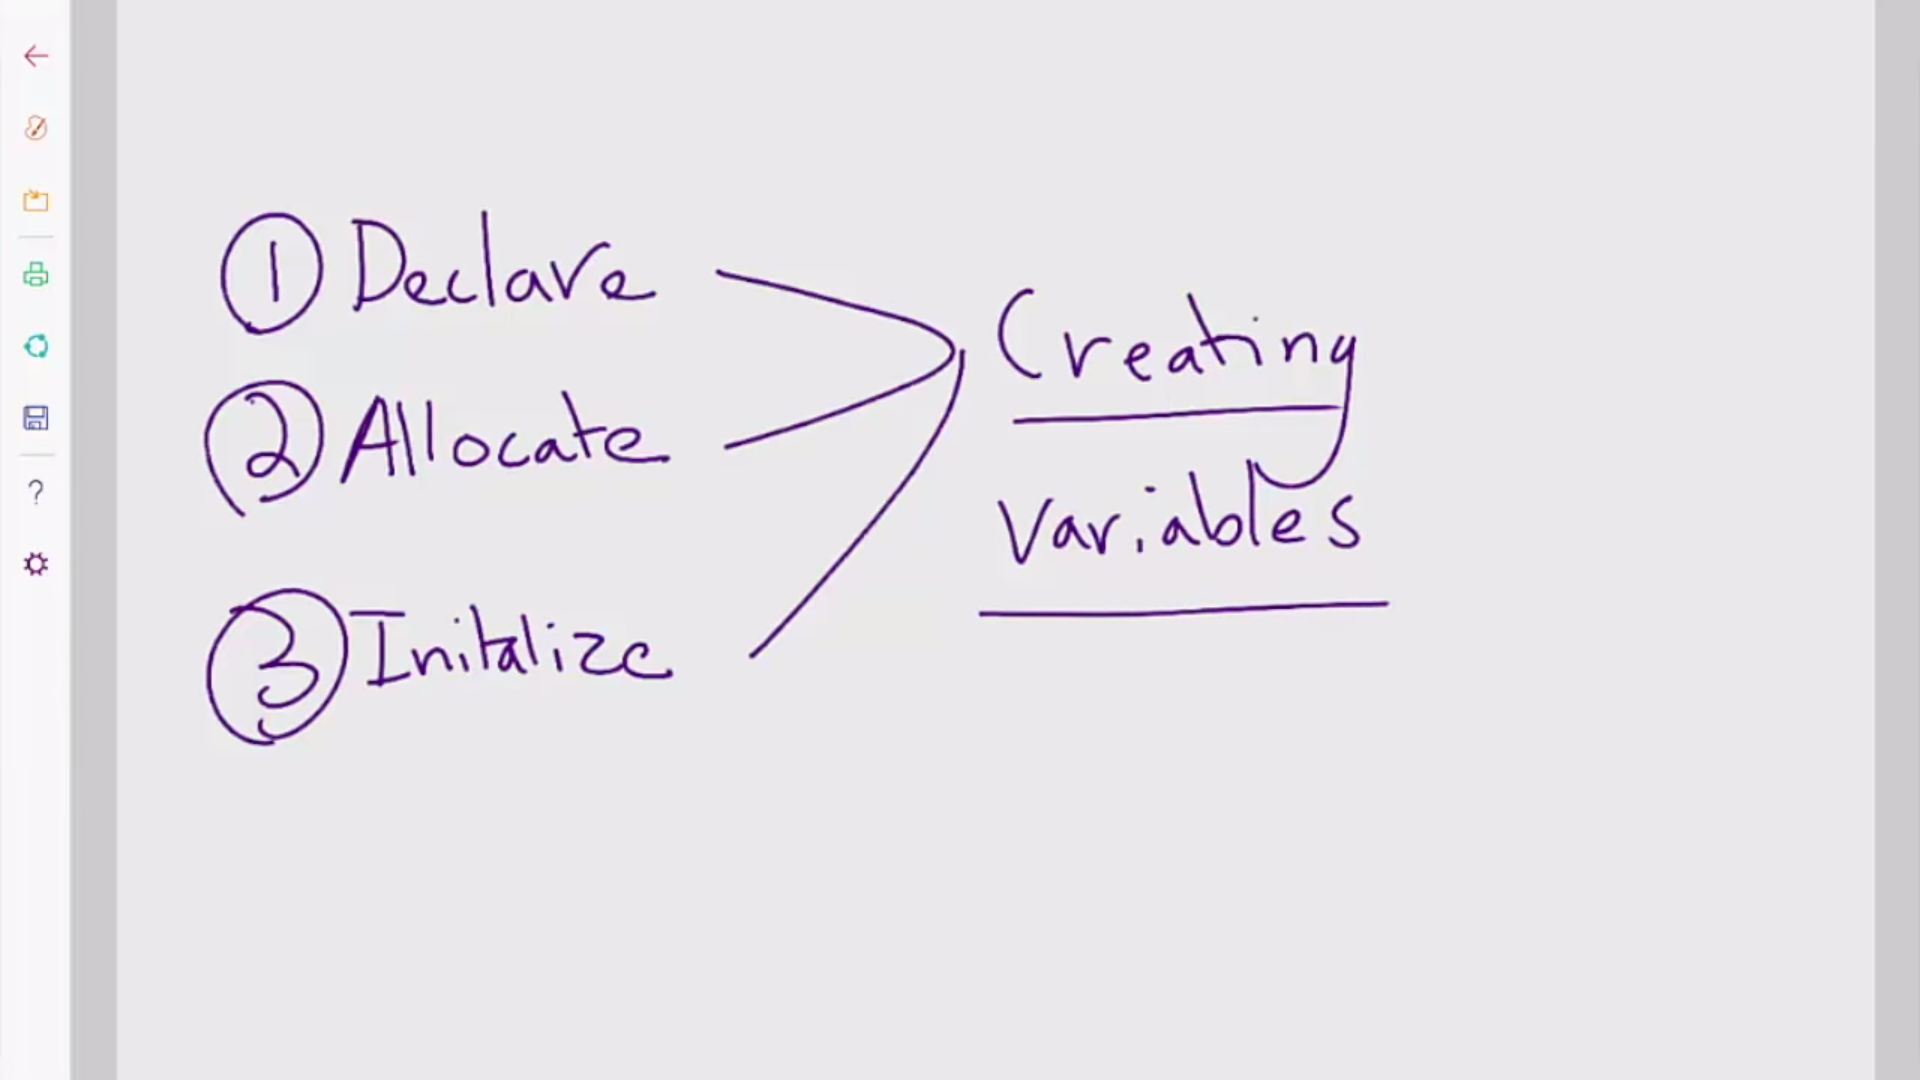 ① Declare
② Allocate
③ Initalize
Creating
Variables
?